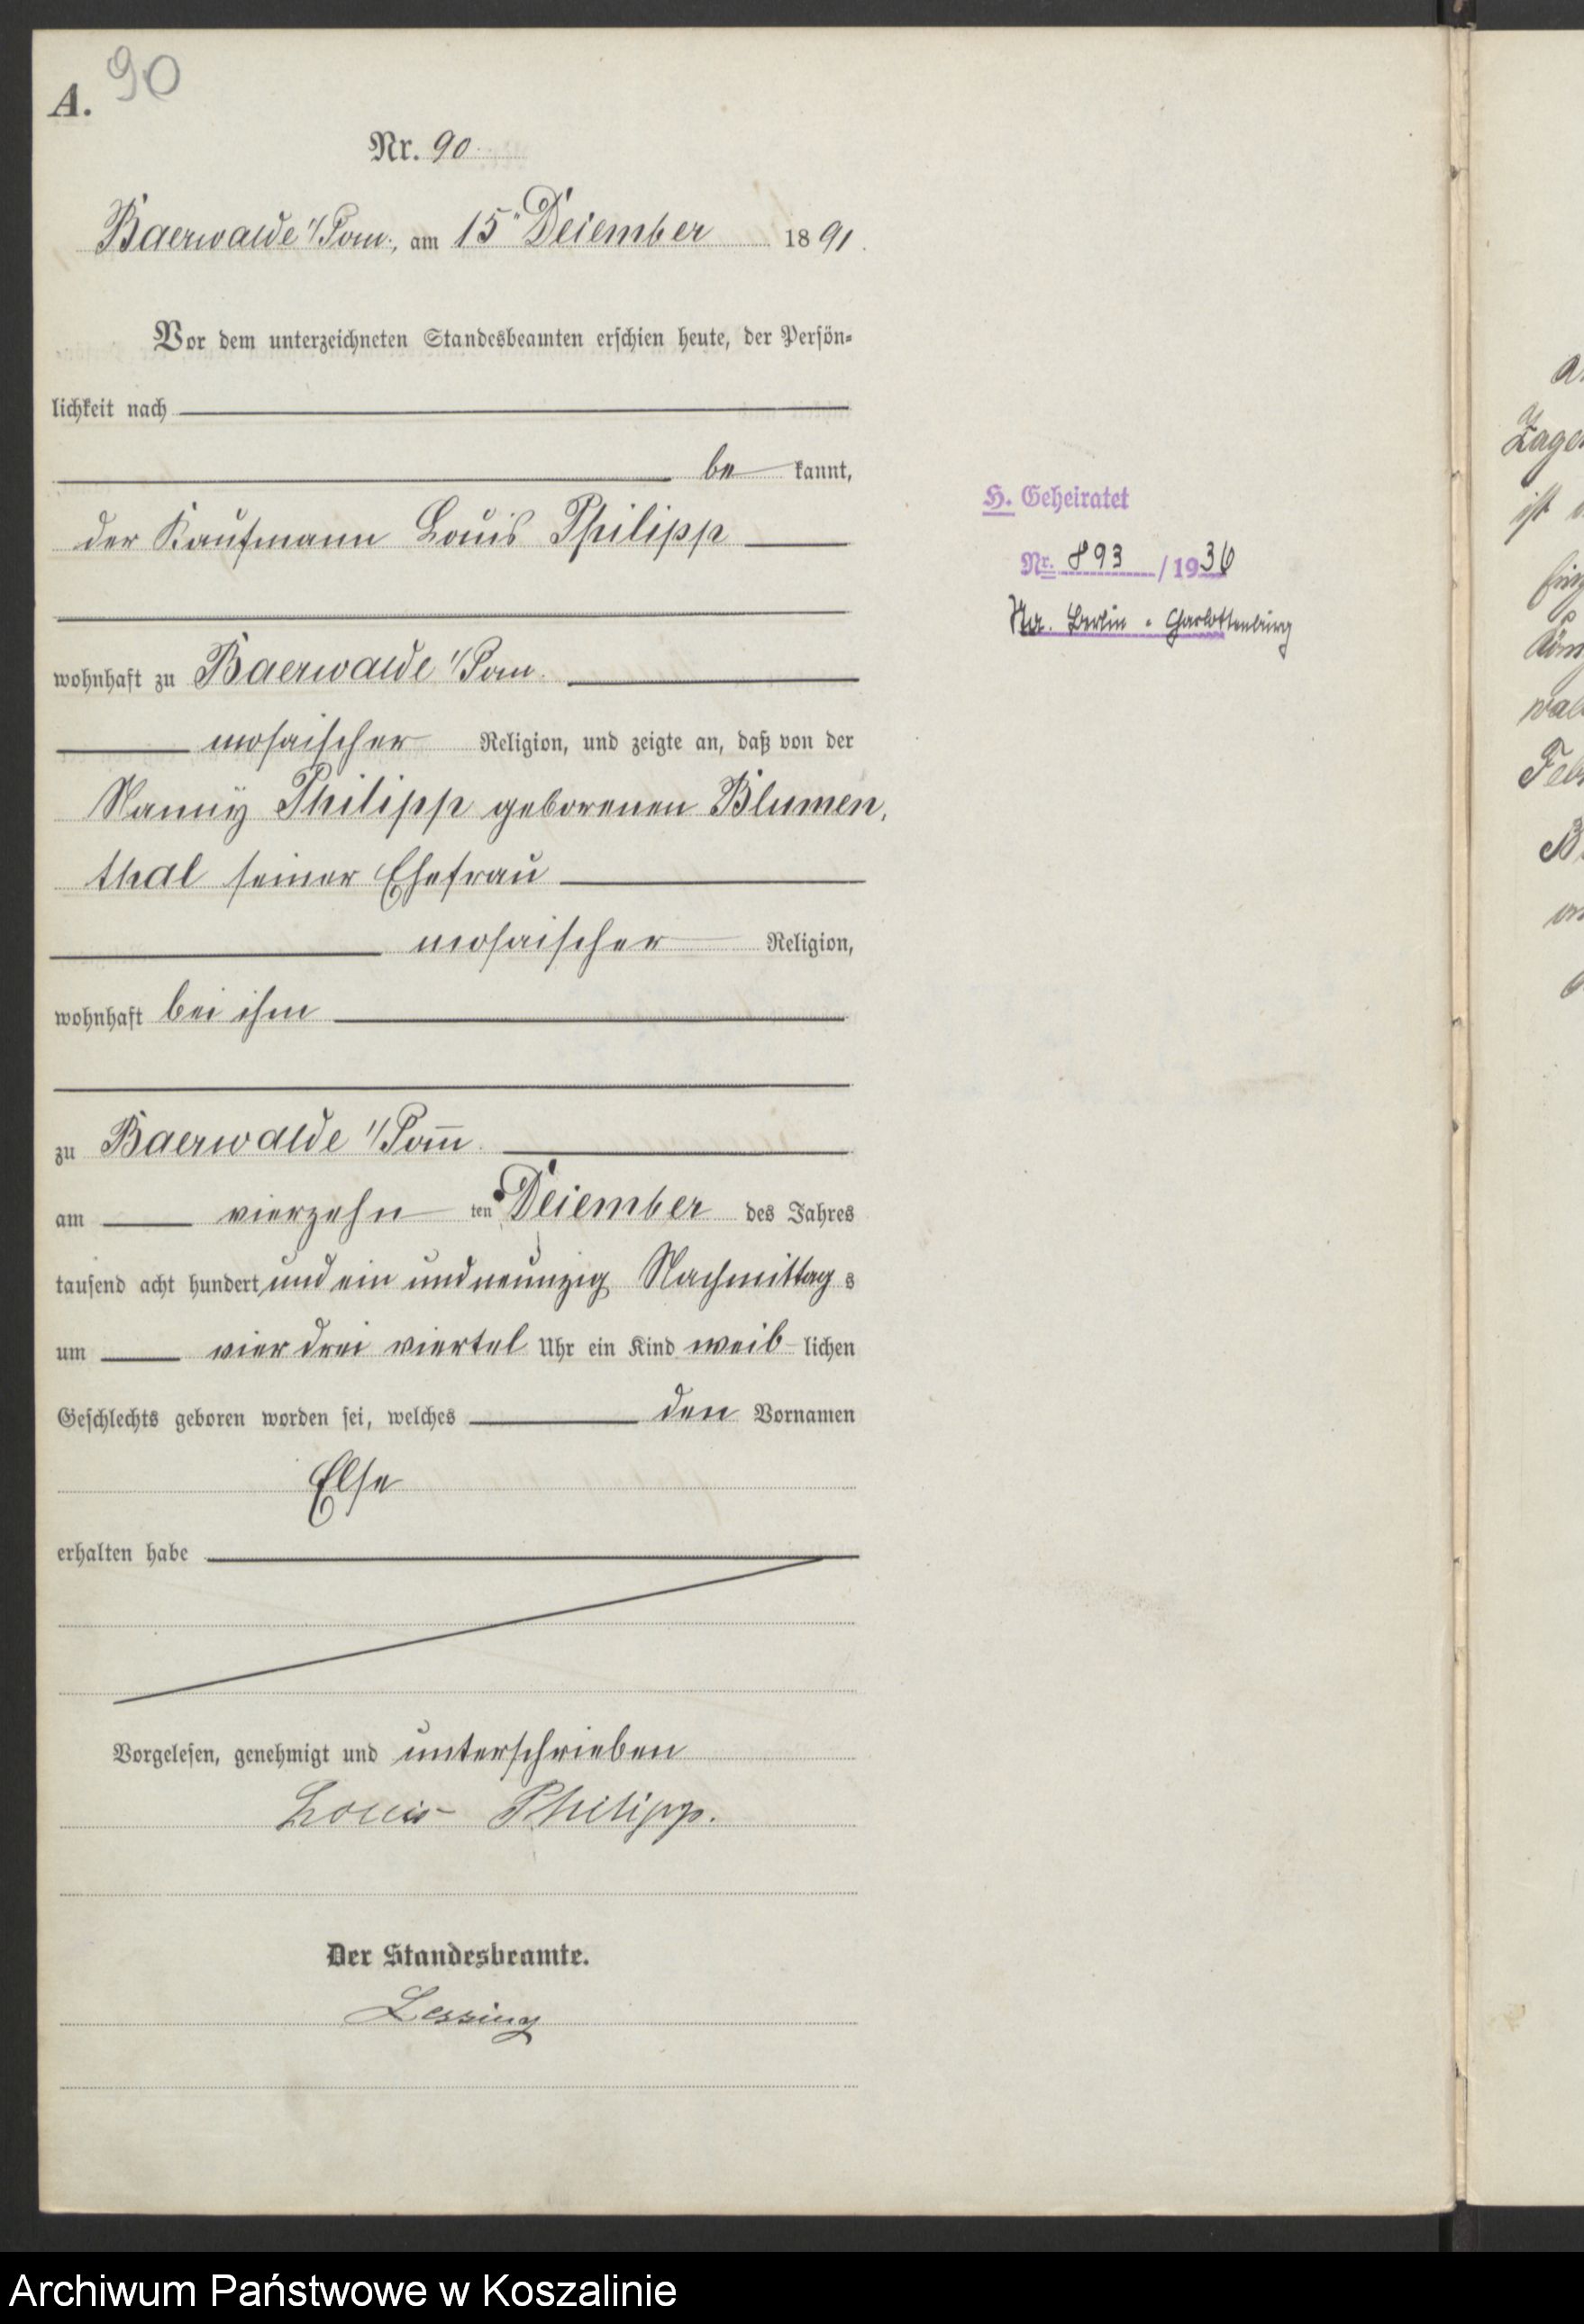 A. 90
Nr. 90
Baerwalde i/Pom., am 15ten Dezember 1891.
Vor dem unterzeichneten Standesbeamten erschien heute, der Persön-
lichkeit nach
be kannt,
der Kaufmann Louis Philipp
wohnhaft zu Baerwalde i/Pom.
mosaischer Religion, und zeigte an, daß von der
Nanny Philipp geborenen Blumen-
thal seiner Ehefrau
mosaischer Religion,
wohnhaft bei ihm
zu Baerwalde i/Pom̄.
am vierzehn ten Dezember des Jahres
tausend acht hundert und ein und neunzig Nachmittag s
um vier drei viertel Uhr ein Kind weib lichen
Geschlechts geboren worden sei, welches den Vornamen
Else
erhalten habe
Vorgelesen, genehmigt und unterschrieben
Louis Philipp.
Der Standesbeamte.
Lessing
H. Geheiratet
Nr. 893 / 1936
Berlin - Charlottenburg
Archiwum Państwowe w Koszalinie